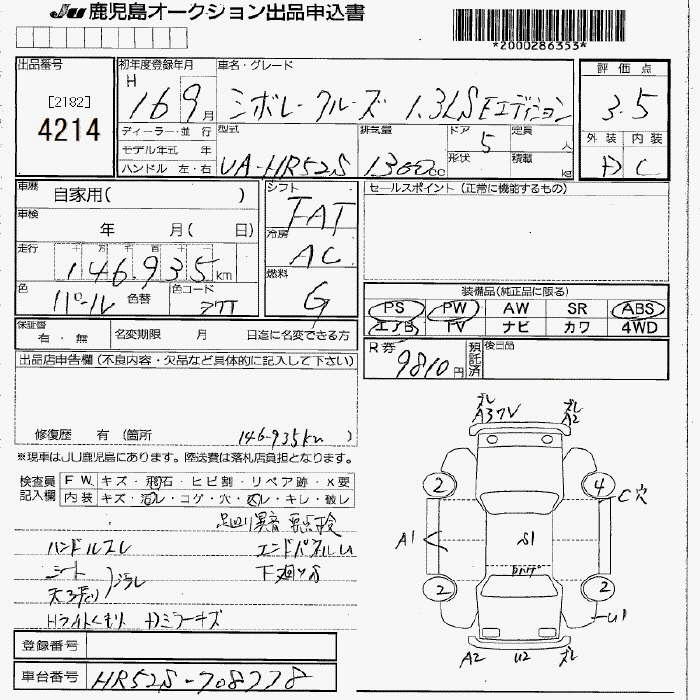 JU 鹿児島オークション出品申込書
*2000286353*
出品番号
[2182]
4214
初年度登録年月
H 16 9月
車名・グレード
シボレークルーズ 1.3LS Eエディション
評価点
3.5
外装 内装
D C
ディーラー・並行
モデル年式 年
ハンドル 左・右
型式
UA-HR52S
排気量
1300cc
ドア
5
形状
定員 人
積載 kg
車歴 自家用( )
車検 年 月( 日)
走行 十 万 千 百 十 一
146,935km
色 パール
色替
色コード
シフト
FAT
冷房
AC
燃料
G
セールスポイント(正常に機能するもの)
装備品(純正品に限る)
PS PW AW SR ABS
エアB TV ナビ カワ 4WD
保証書 有・無
名変期限 月 日迄に名変できる方
R券 9810円
預託済
後日品
出品店申告欄(不良内容・欠品など具体的に記入して下さい)
修復歴 有(箇所 146.935km )
※現車はJU鹿児島にあります。陸送費は落札店負担となります。
検査員記入欄
F W. キズ・飛石・ヒビ割・リペア跡・X要
内装 キズ・汚レ・コゲ・穴・スレ・キレ・破レ
足回り異音 要点検
ハンドルスレ エンドパネルU
シート
天張り 汚レ
下廻りS
Hライトくもり Dミラーキズ
登録番号
車台番号 HR52S-708778
ズレ
A3 XV
ズレ
A2
2
4
C穴
A1
S1
2
2
U1
A2
U2
ズレ